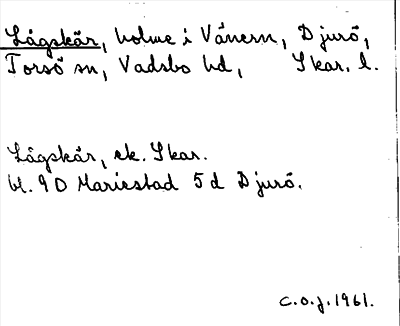 Lågskär, holme i Vänern, Djurö,
Torsö sn, Vadsbo hd, Skar. l.
Lågskär, ek. Skar.
bl. 9D Mariestad 5d Djurö.
C.O.J. 1961.